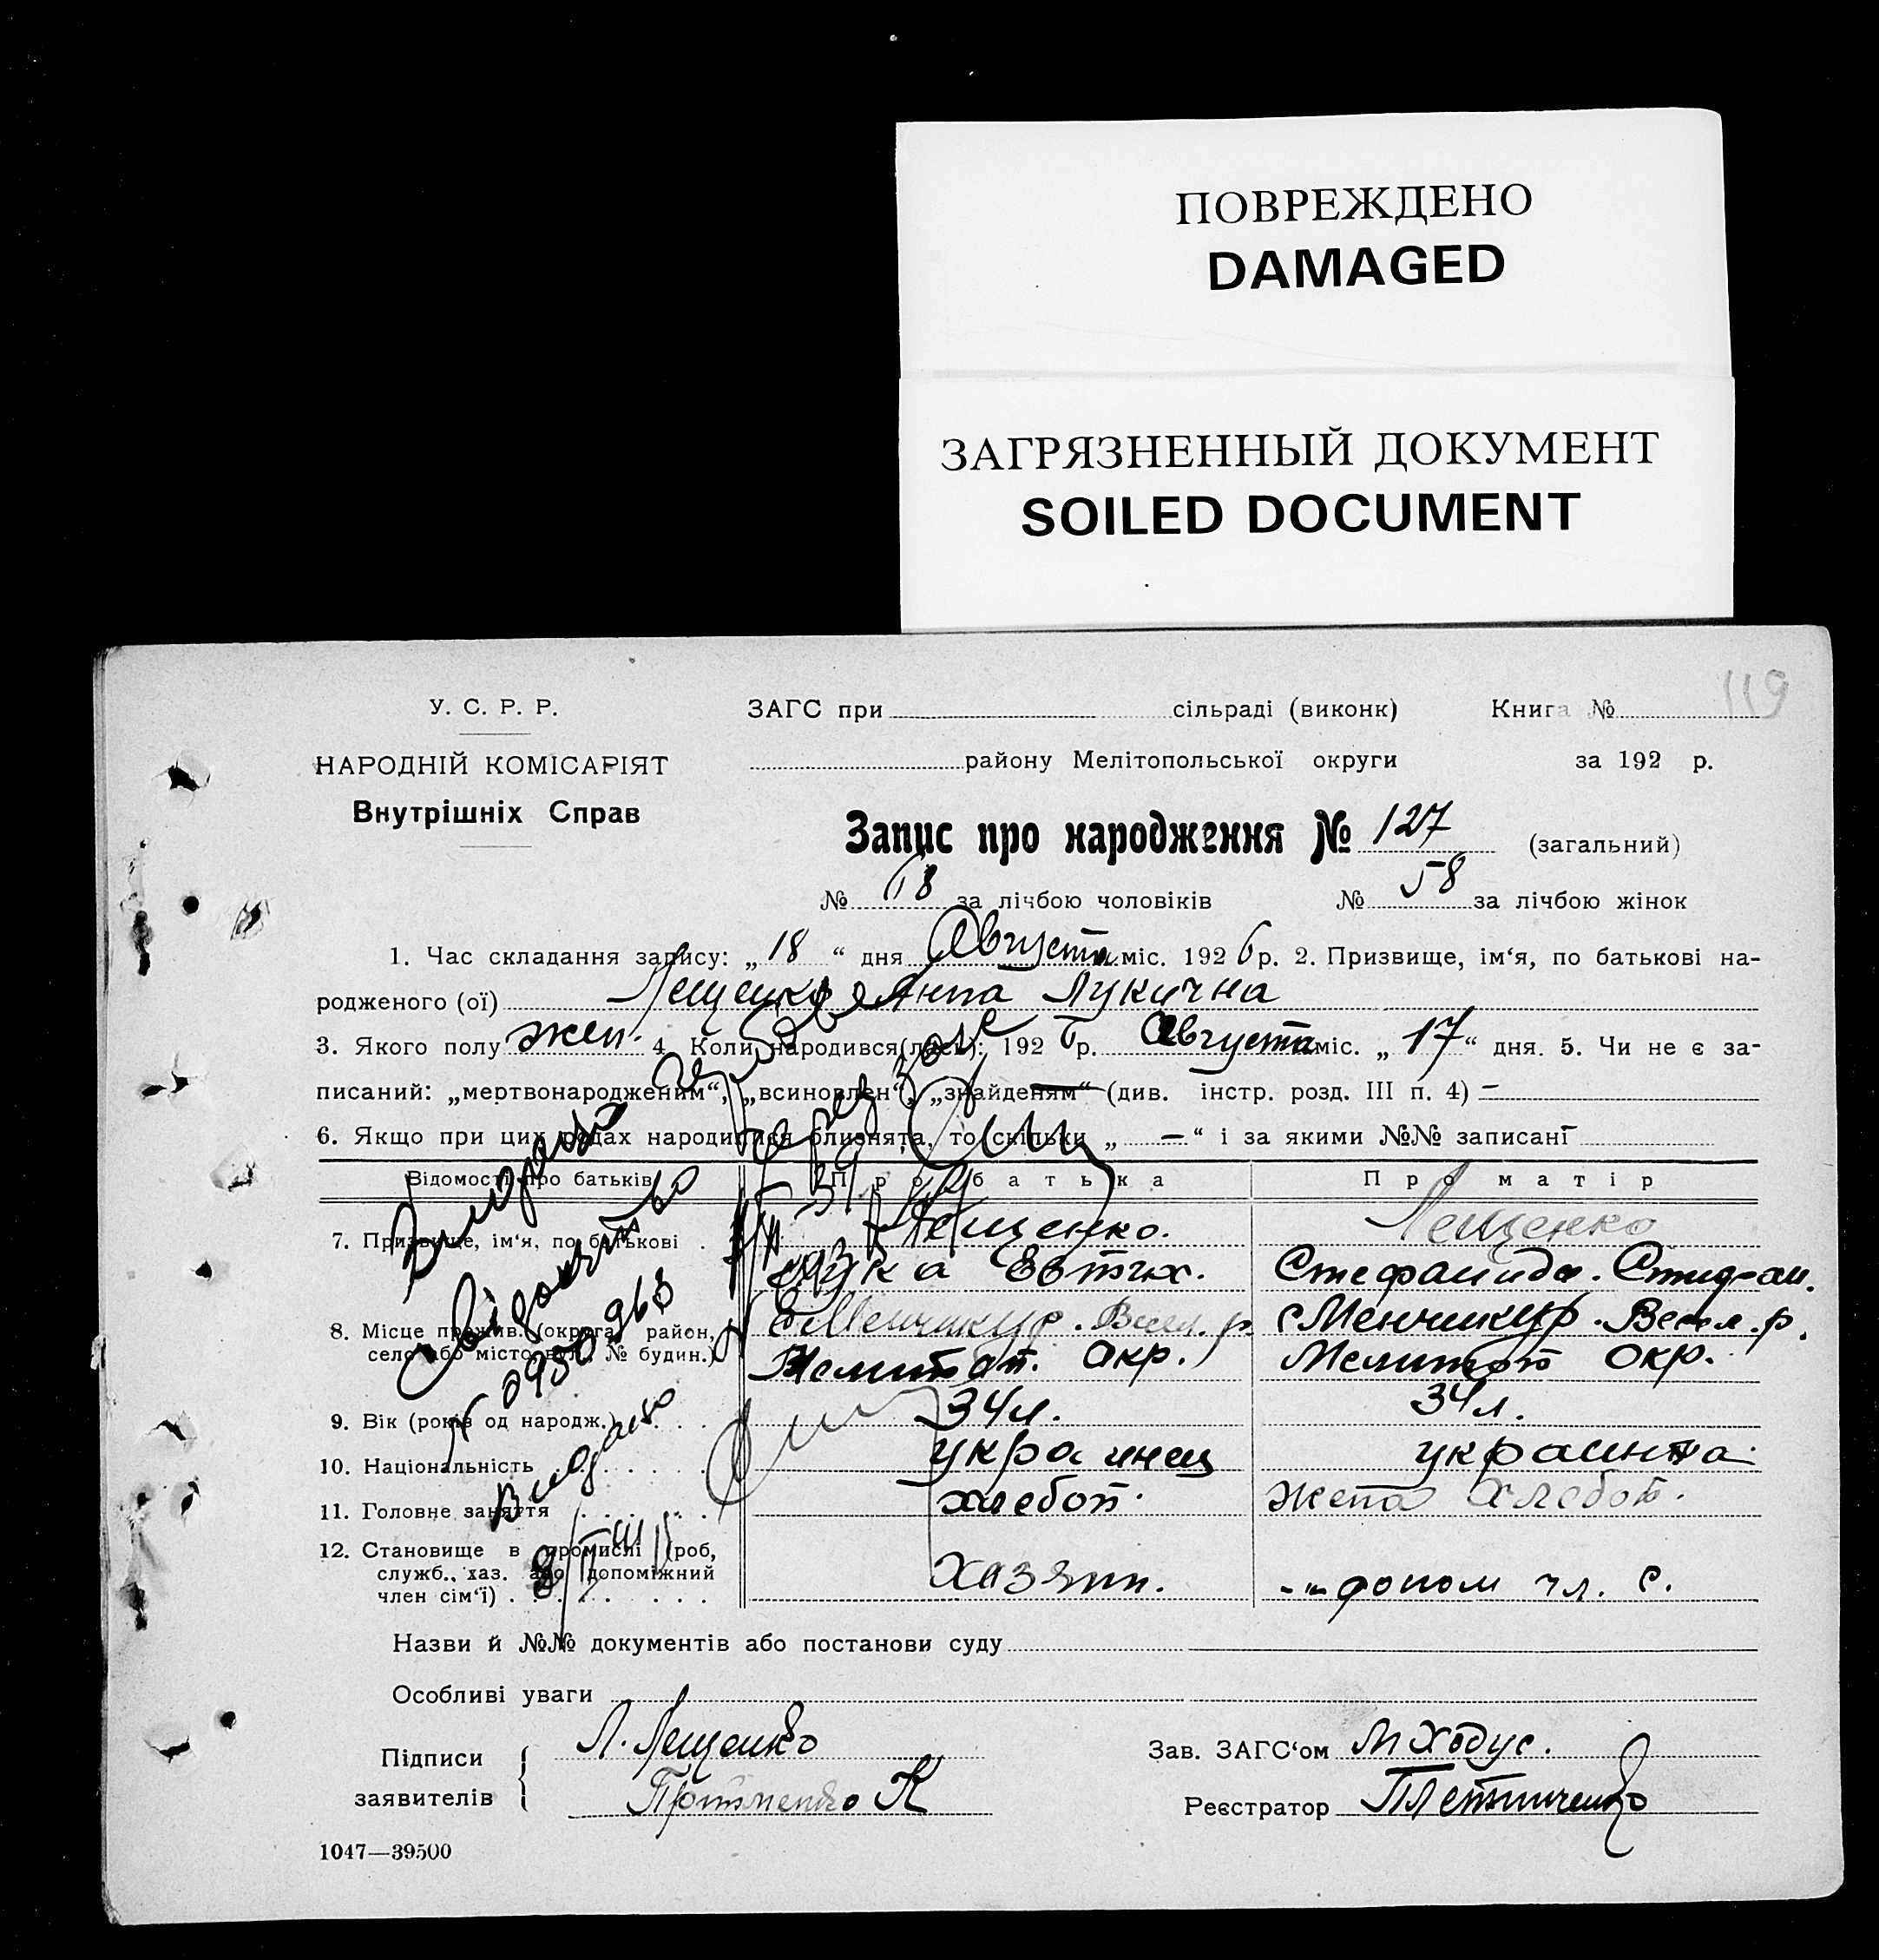 ПОВРЕЖДЕНО
DAMAGED
ЗАГРЯЗНЕННЫЙ ДОКУМЕНТ
SOILED DOCUMENT
119
У. С. Р. Р.
НАРОДНІЙ КОМІСАРІЯТ
Внутрішніх Справ
ЗАГС при сільраді (виконк) Книга №
району Мелітопольської округи за 192 р.
Запис про народження № 127 (загальний)
№ 68 за лічбою чоловіків № 58 за лічбою жінок
1. Час складання запису: „18“ дня Августа міс. 1926 р. 2. Призвище, ім‘я, по батькові на-
родженого (ої) Лещенко Анна Лукична
3. Якого полу жен. 4. Коли народився(лась): 1926 р. Августа міс. „17“ дня. 5. Чи не є за-
писаний: „мертвонародженим“, „всиновлен“, „знайденям“ (див. інстр. розд. III п. 4) —
6. Якщо при цих родах народилися близнята, то скільки „—“ і за якими №№ записані —
Відомості про батьків Про батька Про матір
7. Призвище, ім‘я, по батькові . Лещенко. Лещенко
Лука Евтих. Стефанида.
8. Місце прожив. (округа, район, с Менчикур. Весел. р. с Менчикур. Весел. р.
село або місто, вул., № будин.) Мелитоп. Окр. Мелитоп Окр.
9. Вік (років од народж.) . . . 34 л. 34 л.
10. Національність . . . . . . украинец украинка
11. Головне заняття . . . . . . хлебоп. жена хлебоп.
12. Становище в промислі (роб, служб., хаз. або допоміжний член сім‘ї) . . . . . . . Хазяин. допом чл. с.
Назви й №№ документів або постанови суду
Особливі уваги
Підписи заявителів { Л. Лещенко
К
Зав. ЗАГС‘ом М Ходус.
Реєстратор
1047—39500
Видано